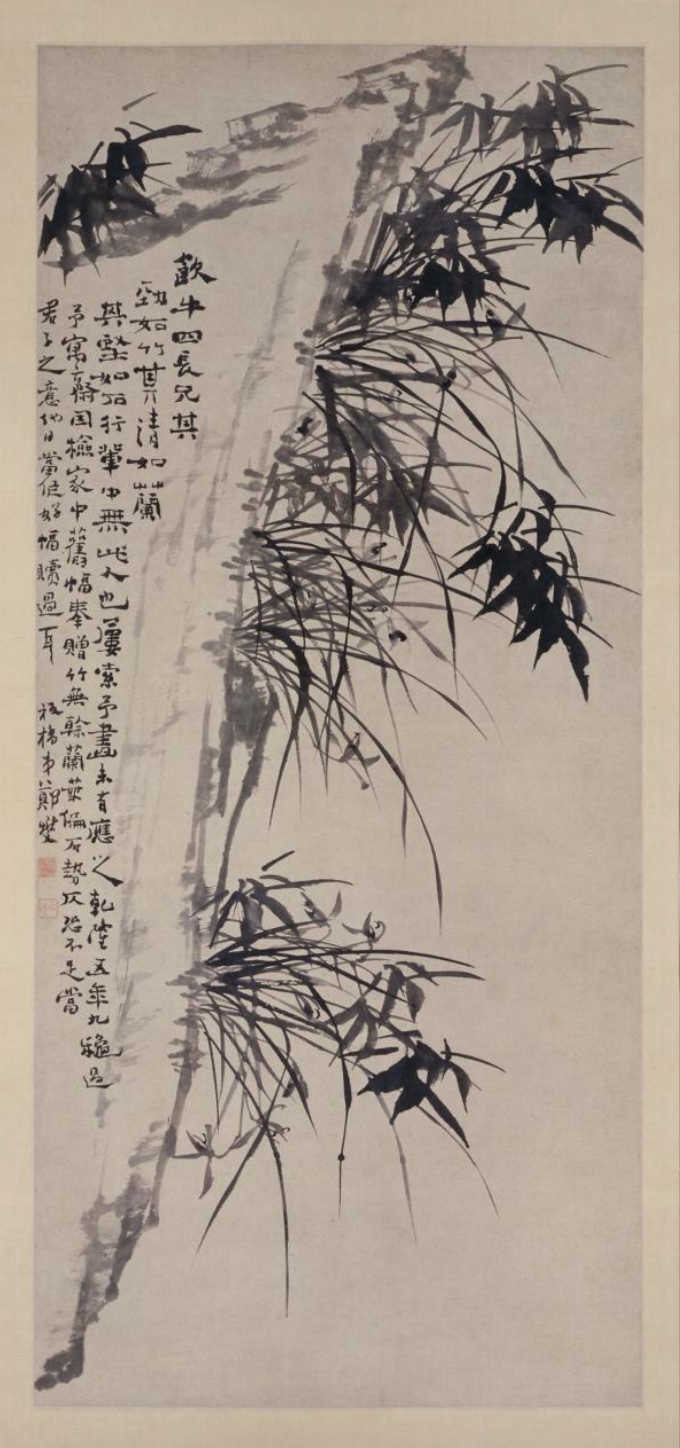 飲牛四長兄其
勁如竹其清如蘭
其堅如石行輩中無此人也屢索予畫未有應之乾隆五年九龝過
予寓齋因檢家中舊幅奉贈竹無餘蘭葉偏石勢仄恐不足當
君子之意他日當作好幅贖過耳 板橋弟鄭燮